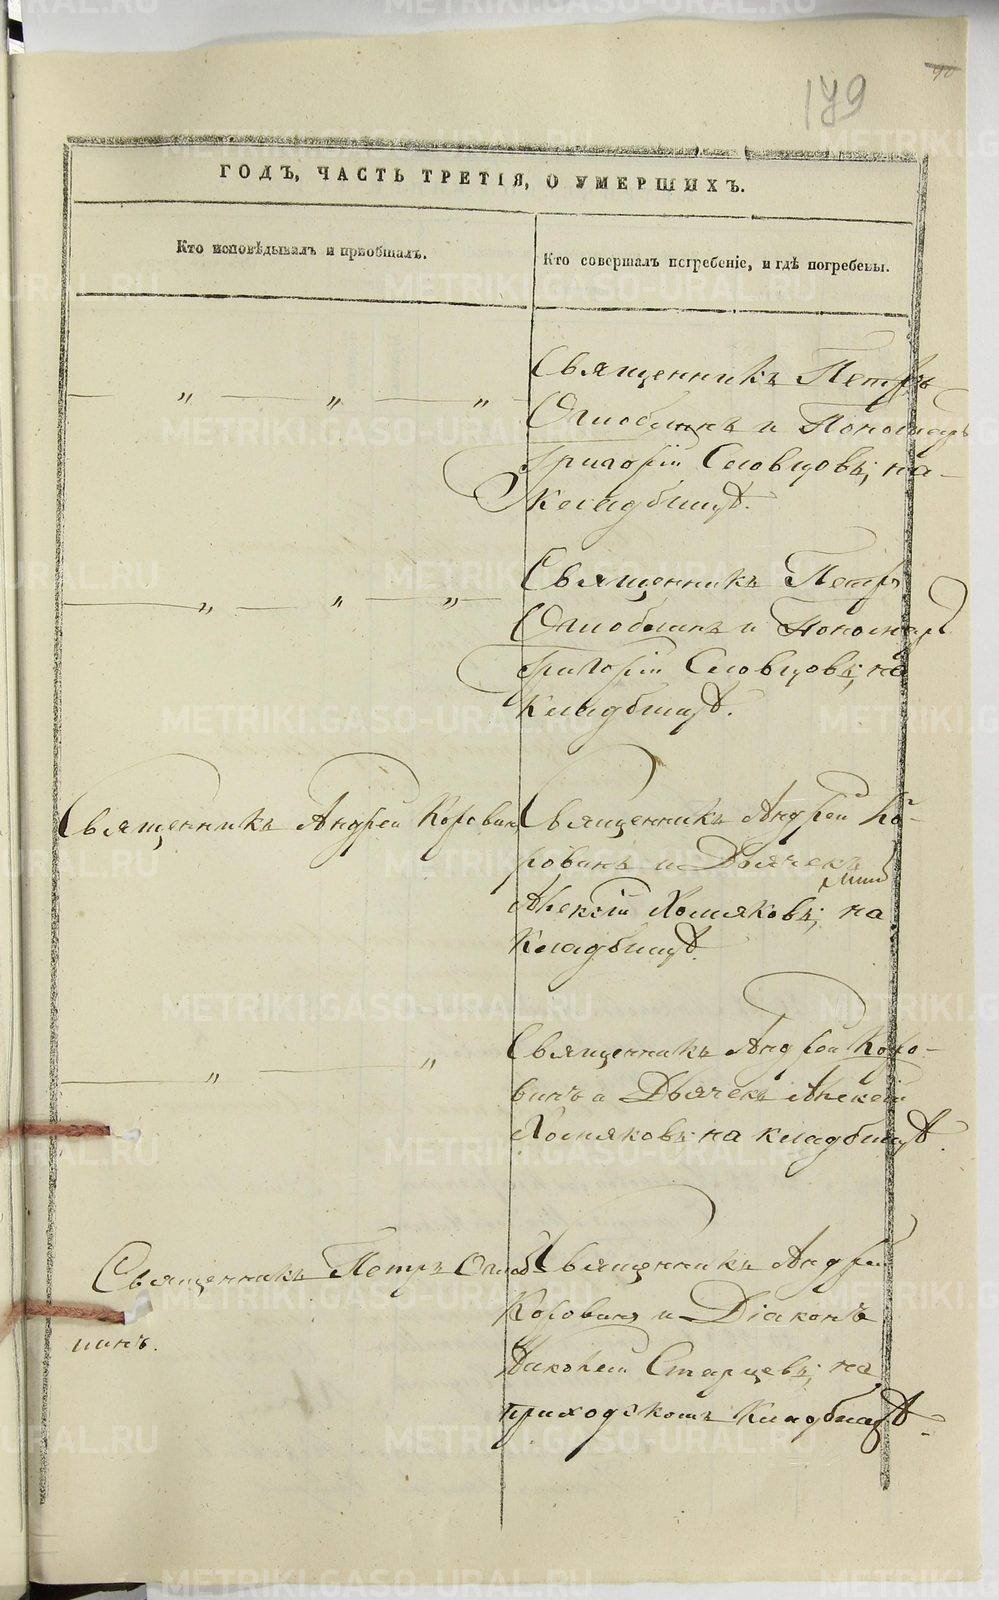 179
ГОДЪ, ЧАСТЬ ТРЕТІЯ, О УМЕРШИХЪ.
Кто исповѣдывалъ и пріобщалъ.
Кто совершалъ погребеніе, и гдѣ погребены.
Священникъ Петръ
и Пономарь
Григорій Словцовъ; на
кладбищѣ.
Священникъ Петръ
и Пономарь
Григорій Словцовъ; на
кладбищѣ.
Священникъ Андрей Коровинъ
Священникъ Андрей Ко-
ровинъ и Дьячекъ
Алексій Холмяковъ; на
кладбищѣ.
Священникъ Андрей Коро-
винъ а Дьячекъ Алексій
Холмяковъ; на кладбищѣ.
Священникъ Петръ
Священникъ Андрей
Коровинъ и Діаконъ
Николай Старцевъ; на
приходскомъ кладбищѣ.
METRIKI.GASO-URAL.RU